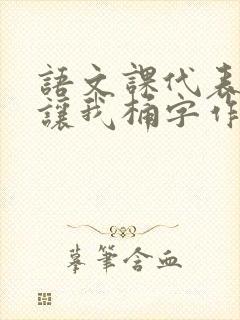 語文課代表
讓我桶字作
摹筆含血